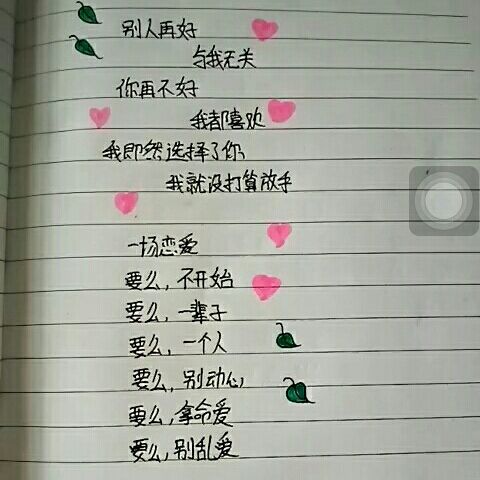 别人再好
与我无关
你再不好
我都喜欢
我即然选择了你,
我就没打算放手
一场恋爱
要么,不开始
要么,一辈子
要么,一个人
要么,别动心,
要么,拿命爱
要么,别乱爱